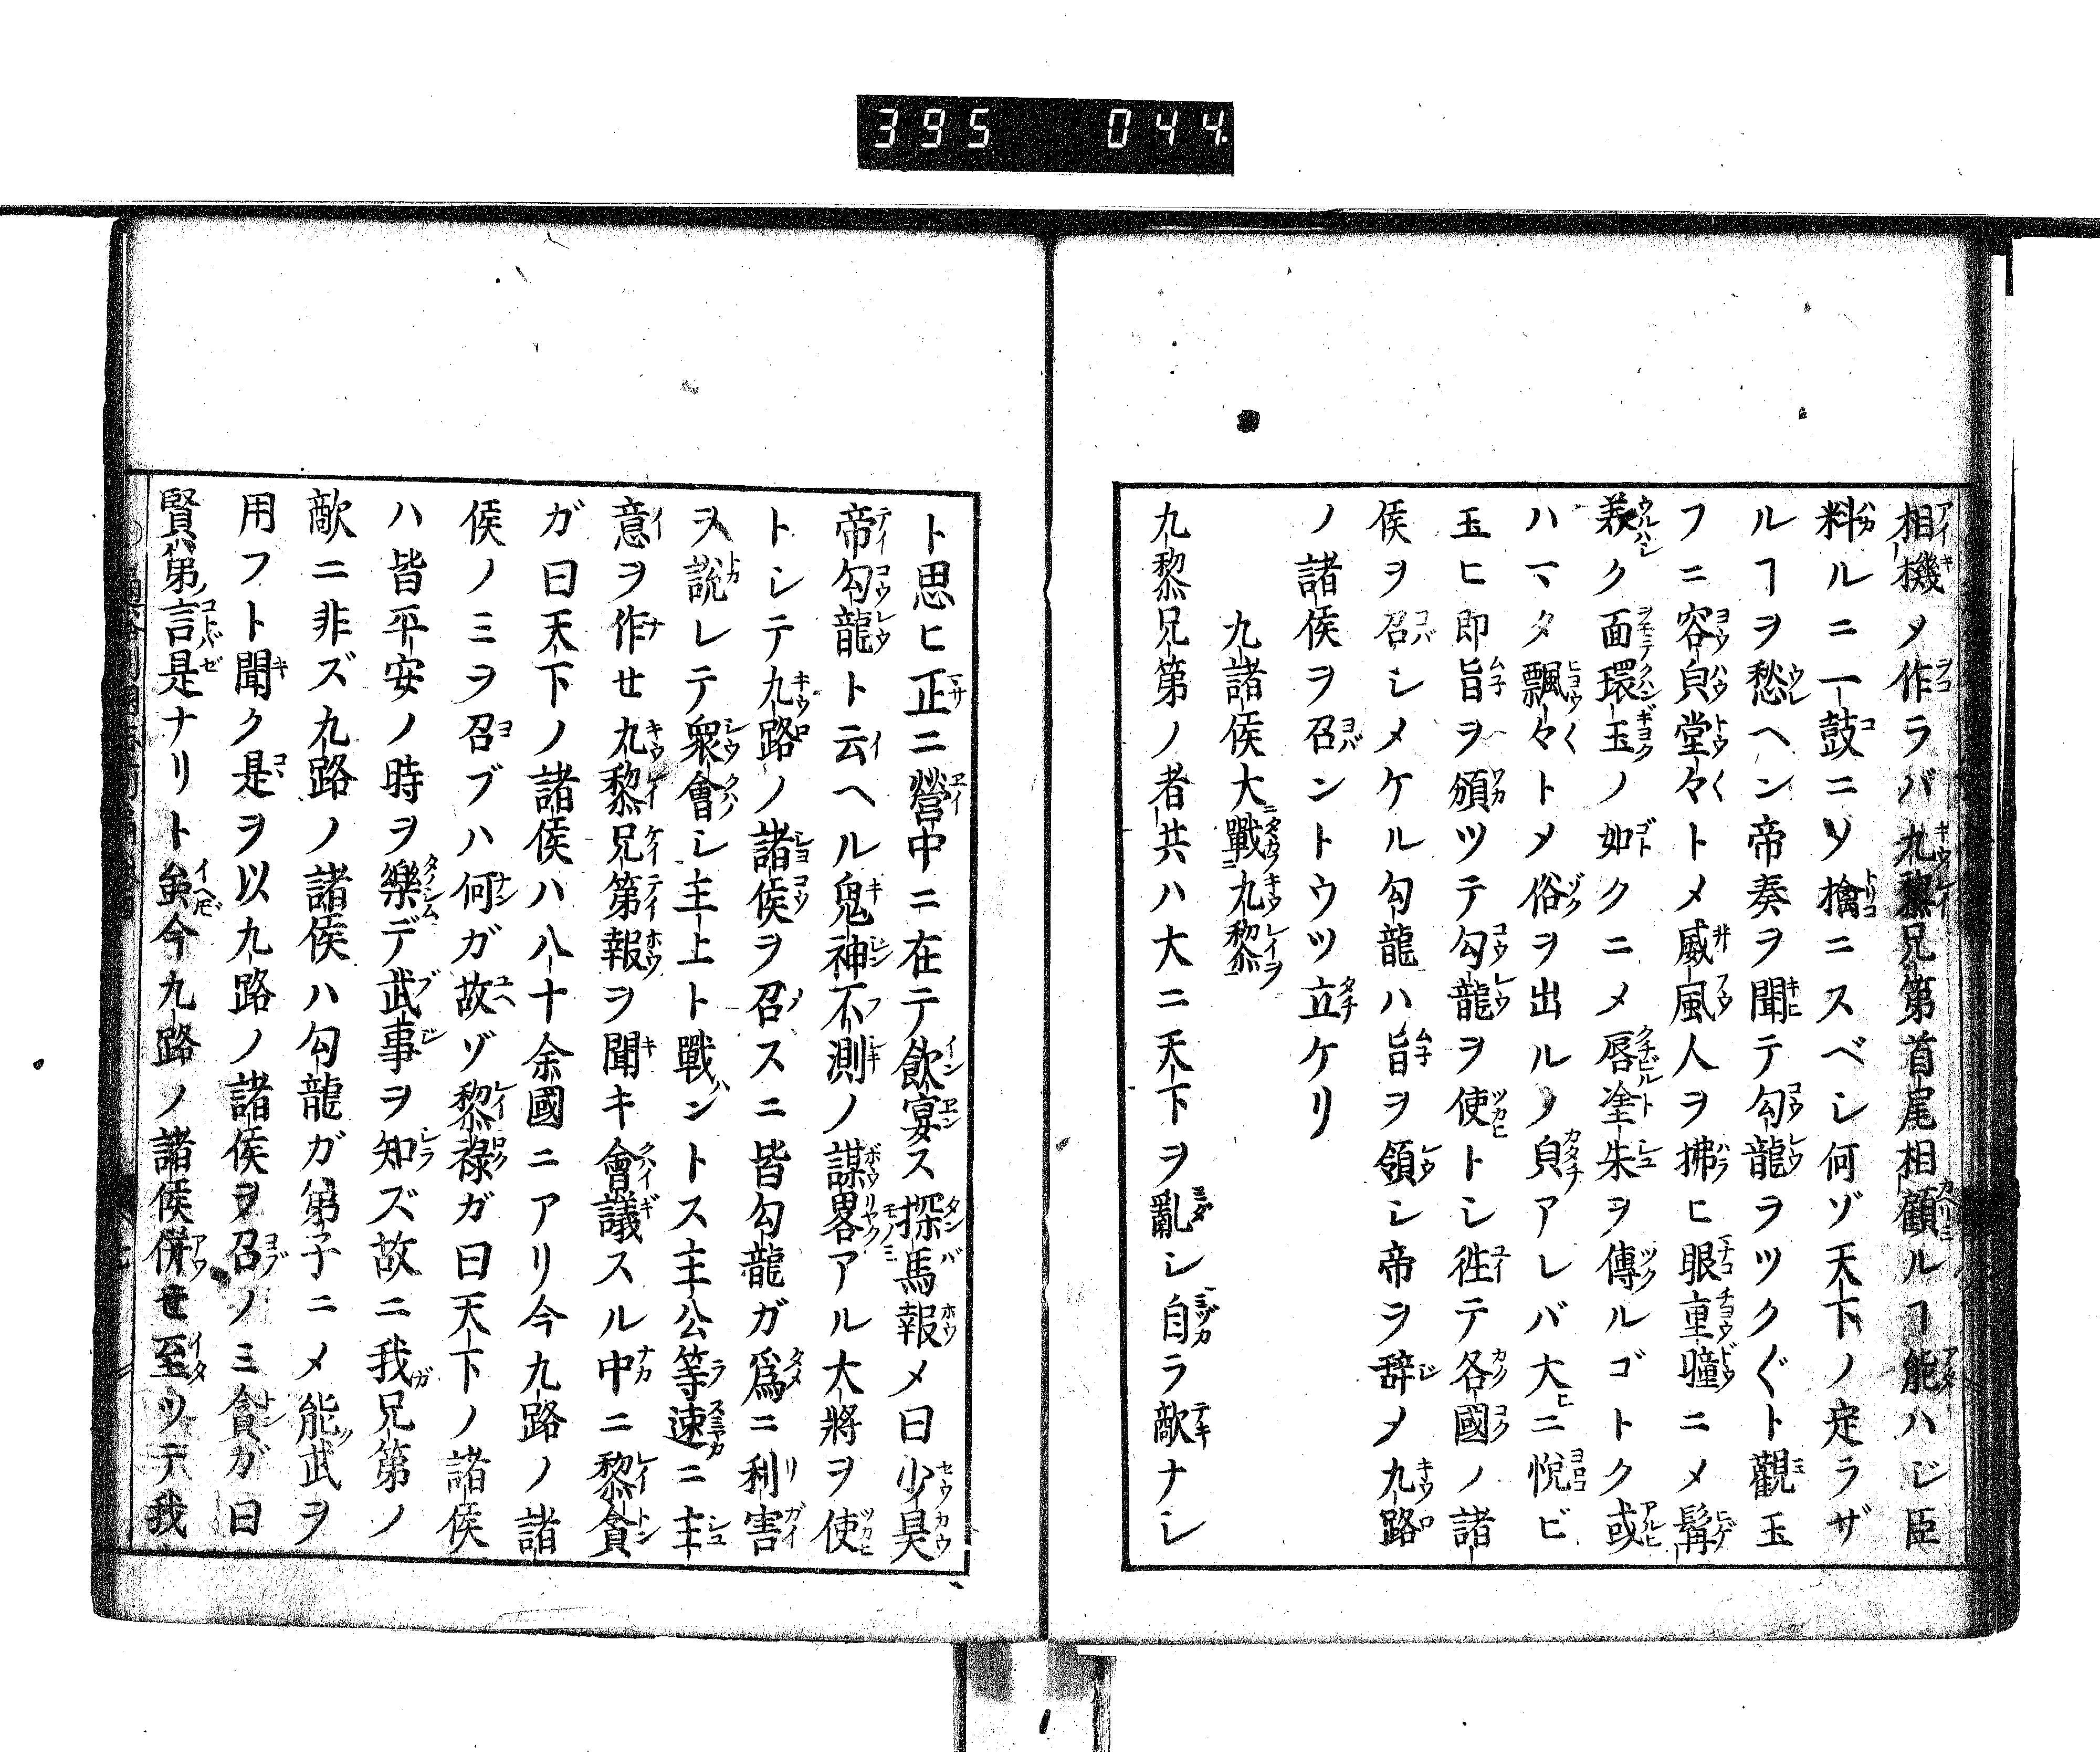 395 044
相機メ作ラバ九黎兄第首尾相顧ルヿ能ハジ臣
料ルニ一鼓ニソ擒ニスベシ何ゾ天下ノ定ラザ
ルヿヲ愁ヘン帝奏ヲ聞テ勾龍ヲツクぐト觀玉
フニ容㒵堂々トメ威風人ヲ拂ヒ眼重瞳ニメ髯
義ク面環玉ノ如クニメ唇塗朱ヲ傳ルゴトク或
ハマタ飄々トメ俗ヲ出ルノ㒵アレバ大ニ悅ビ
玉ヒ即旨ヲ頒ツテ勾龍ヲ使トシ徃テ各國ノ諸
侯ヲ召シメケル勾龍ハ旨ヲ領シ帝ヲ辞メ九路
ノ諸侯ヲ召ントウツ立ケリ
九諸侯大戰九黎
九黎兄第ノ者共ハ大ニ天下ヲ亂シ自ラ敵ナシ
ト思ヒ正ニ營中ニ在テ飲宴ス探馬報メ曰少昊
帝勾龍ト云ヘル鬼神不測ノ謀畧アル大將ヲ使
トシテ九路ノ諸侯ヲ召スニ皆勾龍ガ爲ニ利害
ヲ說レテ衆會シ主上ト戰ントス主公等速ニ主
意ヲ作せ九黎兄第報ヲ聞キ會議スル中ニ黎貪
ガ曰天下ノ諸侯ハ八十余國ニアリ今九路ノ諸
侯ノミヲ召ブハ何ガ故ゾ黎祿ガ曰天下ノ諸侯
ハ皆平安ノ時ヲ樂デ武事ヲ知ズ故ニ我兄第ノ
敵ニ非ズ九路ノ諸侯ハ勾龍ガ第子ニメ能武ヲ
用フト聞ク是ヲ以九路ノ諸侯ヲ召ノミ貪ガ曰
賢第ノ言是ナリト虽今九路ノ諸侯併せ至ツテ我